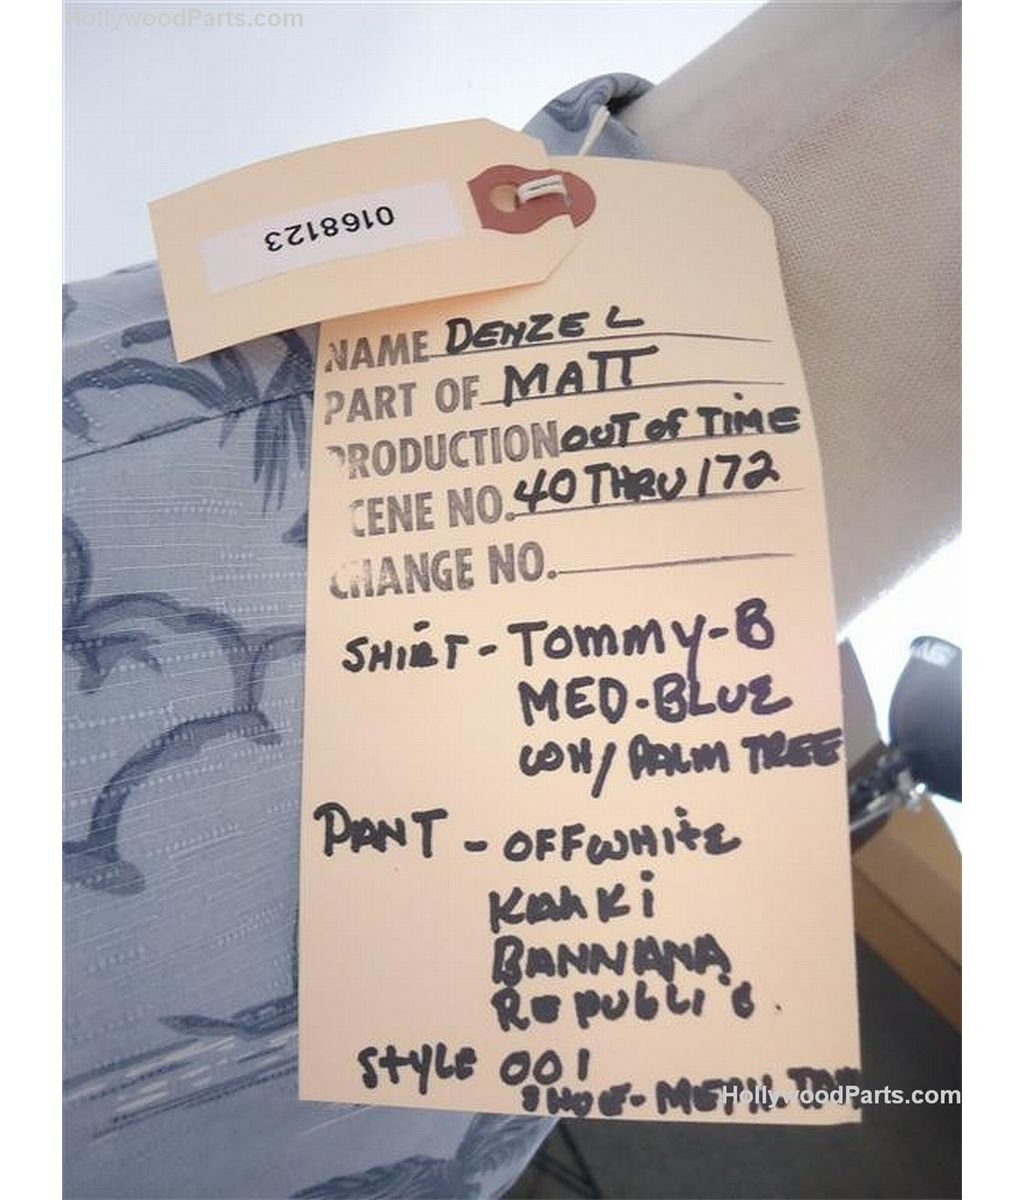 HollywoodParts.com
0168123
NAME DENZEL
PART OF MATT
PRODUCTION OUT OF TIME
CENE NO. 40 THRU 172
CHANGE NO.
SHIRT - TOMMY-B
MED-BLUE
WH/ PALM TREE
PANT - OFFWHITE
KAHKI
BANNANA
REPUBLIC.
STYLE 001
SHOE-
HollywoodParts.com